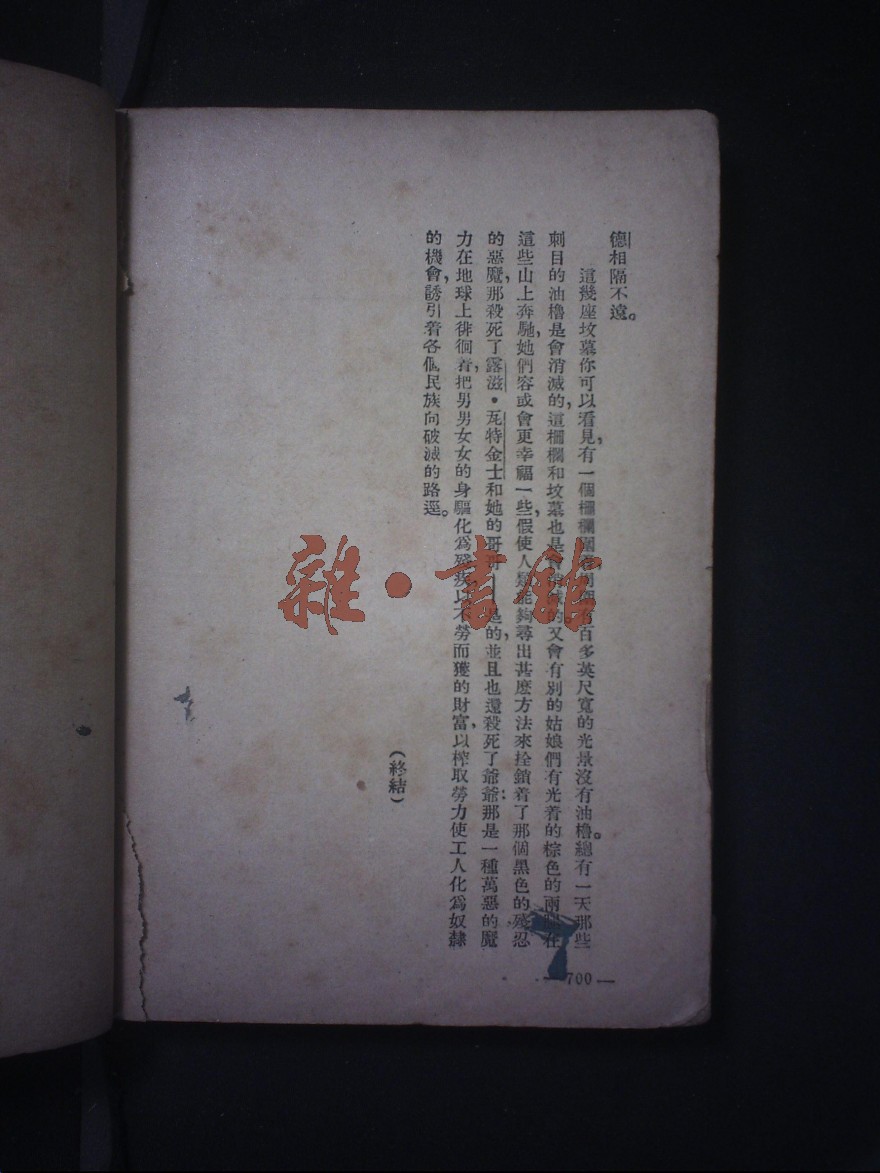 德相隔不遠。
這幾座坟墓你可以看見，有一個柵欄圍着周圍有百多英尺寬的光景沒有油櫓。總有一天那些
刺目的油櫓是會消滅的，這柵欄和坟墓也是會消滅的。又會有別的姑娘們有光着的棕色的兩腿在
這些山上奔馳，她們容或會更幸福一些，假使人類能夠尋出甚麽方法來拴鎖着了那個黑色的殘忍
的惡魔，那殺死了露滋·瓦特金士和她的哥哥——是的，並且也還殺死了爺爺：那是一種萬惡的魔
力在地球上徘徊着，把男男女女的身軀化爲殘疾，以不勞而獲的財富，以榨取勞力使工人化爲奴隸
的機會，誘引着各個民族向破滅的路逕。
（終結）
— 700 —
雜·書館